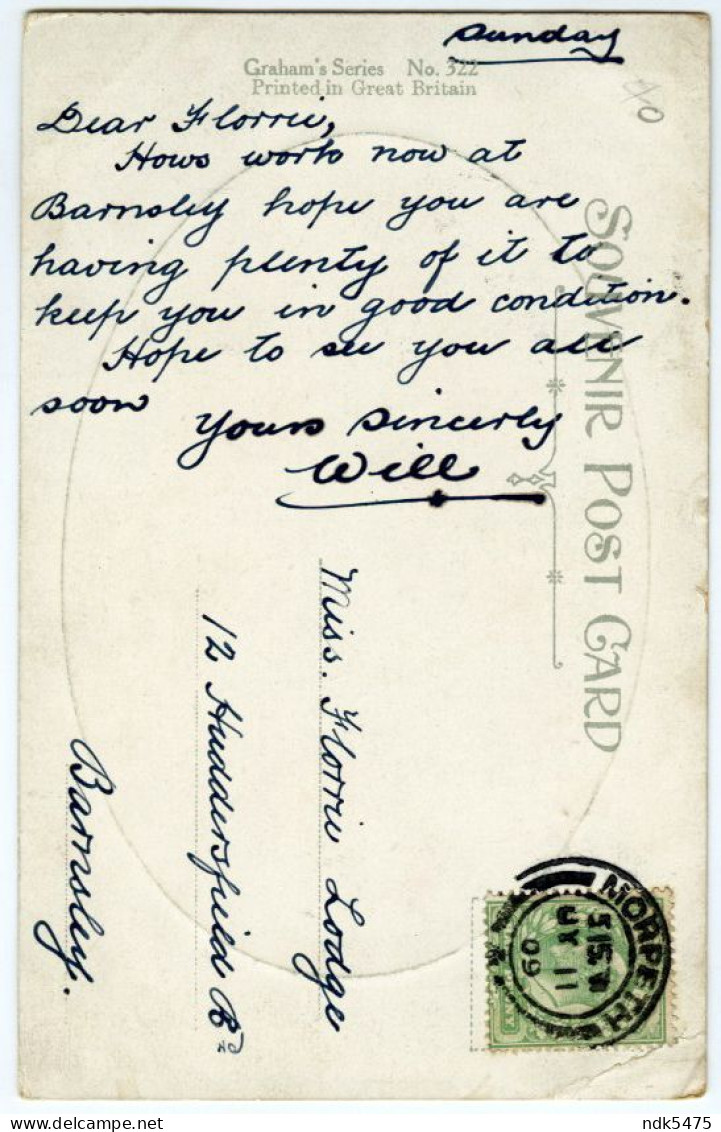 Sunday
Graham's Series No. 322
Printed in Great Britain
Dear Florrie,
Hows work now at
Barnsley hope you are
having plenty of it to
keep you in good condition.
Hope to see you all
soon
Yours Sincerly
Will
SOUVENIR POST CARD
Miss. Florrie Lodge
12 Huddersfield Rd
Barnsley.
MORPETH
MY 11
09
ndk5475